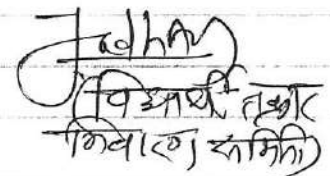 Jadhav
विद्यार्थी तक्रार
निवारण समिती